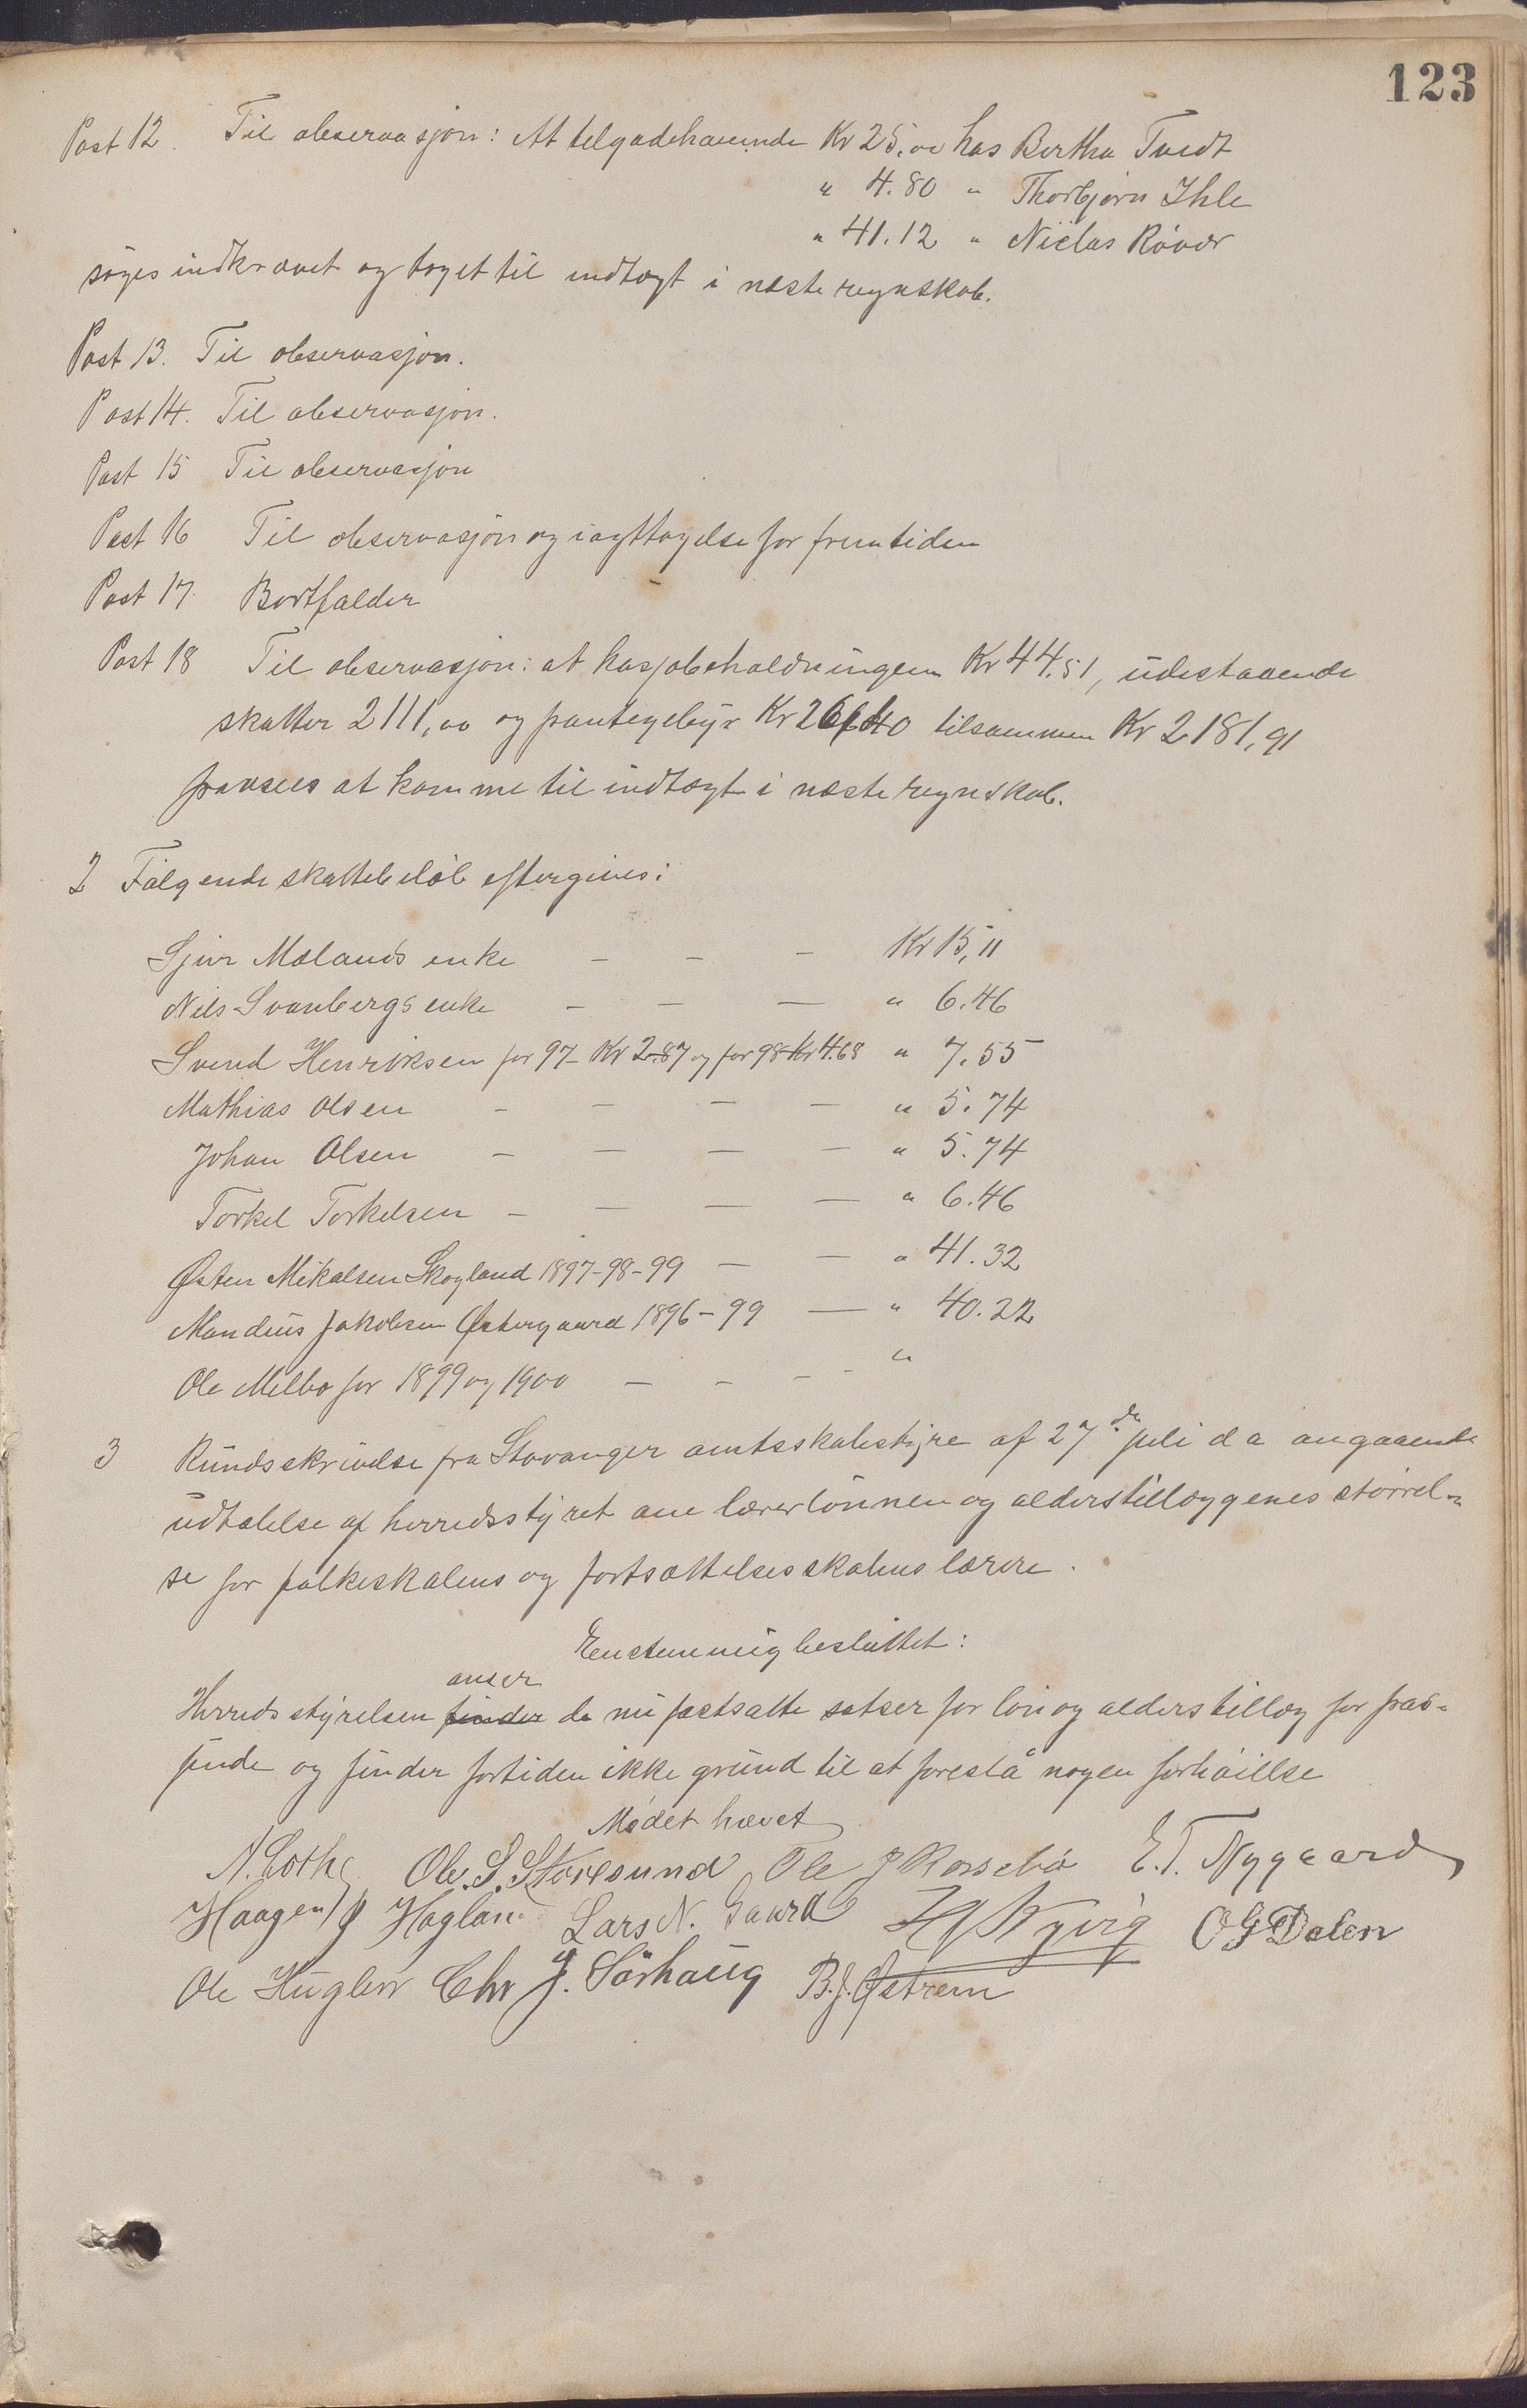 123
Post 12. Til observasjon: At tilgodehavende Kr 25,00 hos Bertha Tvedt
" 4.80 " Thorbjørn Ihle
" 41.12 " Niclas Röver
söges indkrævet og taget til indtægt i næste regnskab.
Post 13. Til observasjon.
Post 14. Til observasjon.
Post 15 Til observasjon
Post 16 Til observasjon og iagttagelse for fremtiden
Post 17 Bortfalder
Post 18 Til observasjon: at kasjobeholdningen Kr 44.51, udestaaende
skatter 2111,00 og pantegebyr Kr 26,40 tilsammen Kr 2181,91
paasees at komme til indtægt i næste regnskab.
2 Følgende skattebeløb eftergives:
Sjur Mælands enke - - - Kr 15,11
Nils Svanbergs enke - - - " 6.46
Svend Henriksen for 97 - Kr 2.87 og for 98 Kr 4.68 " 7.55
Mathias Olsen - - - - " 5.74
Johan Olsen - - - - " 5.74
Torkel Torkelsen - - - - " 6.46
Østen Mikalsen Skogland 1897-98-99 - - " 41.32
Mandius Jakobsen Østergaard 1896-99 - " 40.22
Ole Melbo for 1899 og 1900 - - - - "
3 Rundsskrivelse fra Stavanger amtsskolestyre af 27de juli d a angaaende
udtalelse af herredsstyret om lærerlönnen og alderstillæggenes störrel-
se for folkeskolens og fortsættelsesskolens lærere.
Enstemmig besluttet:
anser
Herredsstyrelsen finder de nu fastsatte satser for lön og alderstillæg for pas-
sende og finder fortiden ikke grund til at foreslå nogen forhöielse
Mødet hævet
N. Lothe Ole. S. Storesund Ole J Rossebö E. T. Nygaard
Haagen J Hagland Lars N. Gaard O G Dalen
Ole Hugler Chr J. Sörhaug B. J. Østrem